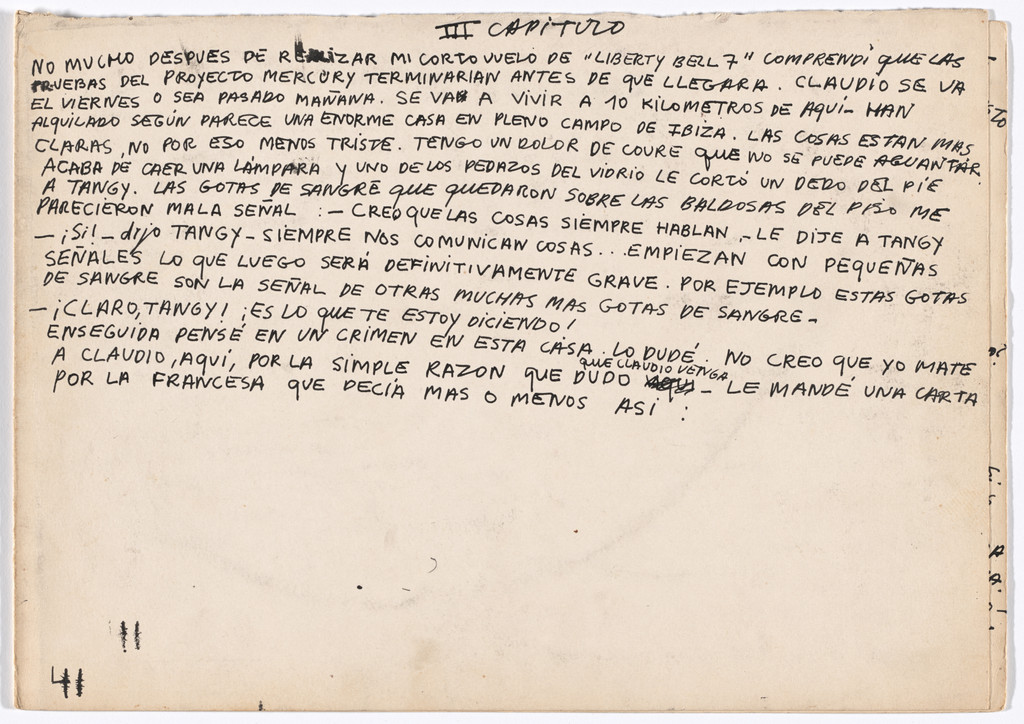 III CAPITULO
NO MUCHO DESPUES DE REALIZAR MI CORTO VUELO DE "LIBERTY BELL 7" COMPRENDÍ QUE LAS
PRUEBAS DEL PROYECTO MERCURY TERMINARIAN ANTES DE QUE LLEGARA. CLAUDIO SE VA
EL VIERNES O SEA PASADO MAÑANA. SE VAN A VIVIR A 10 KILOMETROS DE AQUÍ- HAN
ALQUILADO SEGÚN PARECE UNA ENORME CASA EN PLENO CAMPO DE IBIZA. LAS COSAS ESTAN MAS
CLARAS, NO POR ESO MENOS TRISTE. TENGO UN DOLOR DE COURE QUE NO SE PUEDE AGUANTAR.
ACABA DE CAER UNA LÁMPARA Y UNO DE LOS PEDAZOS DEL VIDRIO LE CORTÓ UN DEDO DEL PIE
A TANGY. LAS GOTAS DE SANGRE QUE QUEDARON SOBRE LAS BALDOSAS DEL PISO ME
PARECIERON MALA SEÑAL : - CREO QUE LAS COSAS SIEMPRE HABLAN - LE DIJE A TANGY
- ¡SI! - dijo TANGY - SIEMPRE NOS COMUNICAN COSAS... EMPIEZAN CON PEQUEÑAS
SEÑALES LO QUE LUEGO SERÁ DEFINITIVAMENTE GRAVE. POR EJEMPLO ESTAS GOTAS
DE SANGRE SON LA SEÑAL DE OTRAS MUCHAS MAS GOTAS DE SANGRE -
- ¡CLARO, TANGY! ¡ES LO QUE TE ESTOY DICIENDO!
ENSEGUIDA PENSÉ EN UN CRIMEN EN ESTA CASA. LO DUDÉ. NO CREO QUE YO MATE
A CLAUDIO, AQUÍ, POR LA SIMPLE RAZON QUE DUDO QUE CLAUDIO VENGA - LE MANDÉ UNA CARTA
POR LA FRANCESA QUE DECÍA MAS O MENOS ASÍ :